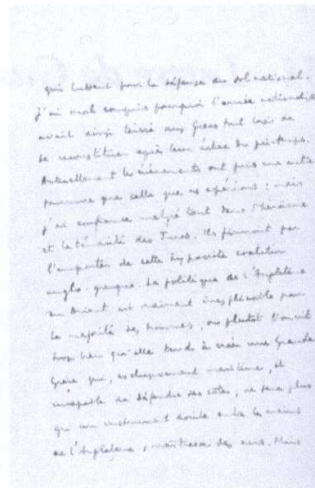 qui luttent pour la défense du sol national.
J'ai mal compris pourquoi l'armée nationaliste
avait ainsi laissé aux Grecs tout loisir de
se reconstituer après leur échec du printemps.
Actuellement les événements ont pris une autre
tournure que celle que ns espérions ; mais
j'ai confiance malgré tout dans l'héroïsme
et la ténacité des Turcs. Ils finiront par
l'emporter de cette hypocrite coalition
anglo-grecque. La politique de l'Angleterre
en Orient est vraiment inexplicable pour
la majorité des hommes, ou plutôt l'on voit
trop bien qu'elle tend à créer une Grande
Grèce qui, exclusivement maritime, et
incapable de défendre ses côtes, ne sera plus
qu'un instrument docile entre les mains
de l'Angleterre, maîtresse des mers. Mais